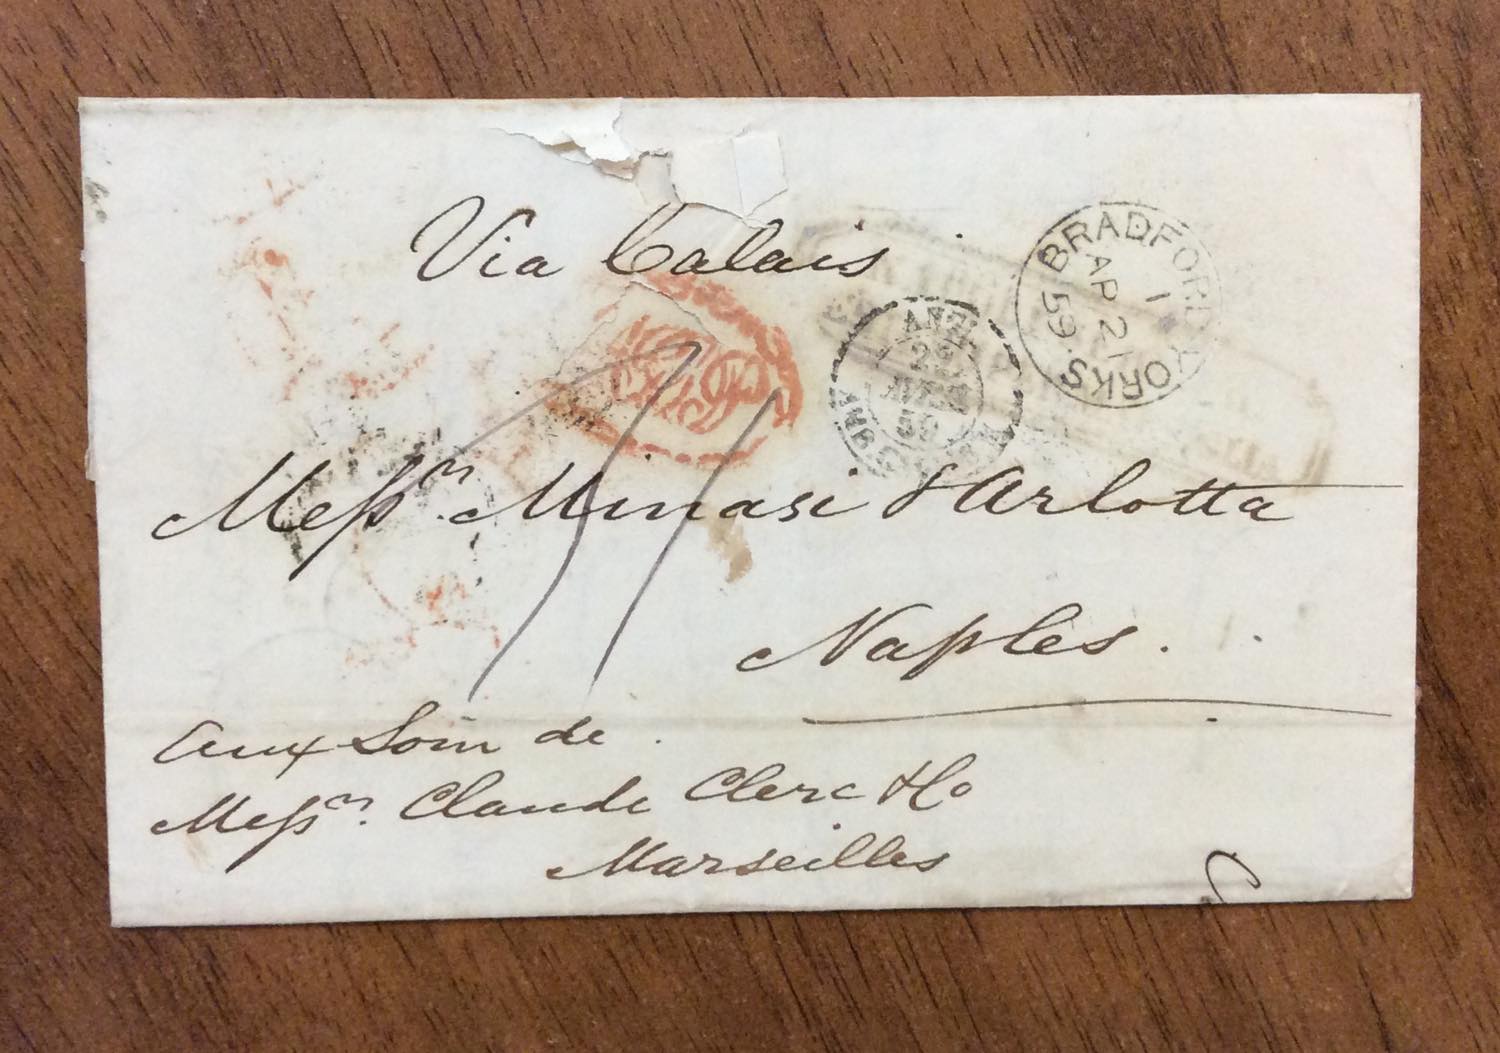 Via Calais
BRADFORD YORKS
1
AP 21
59
ANGL
22
AVRIL
59
Messrs. Minasi & Arlotta
Naples.
Aux Soin de
Messrs. Claude Clerc & Co
Marseilles